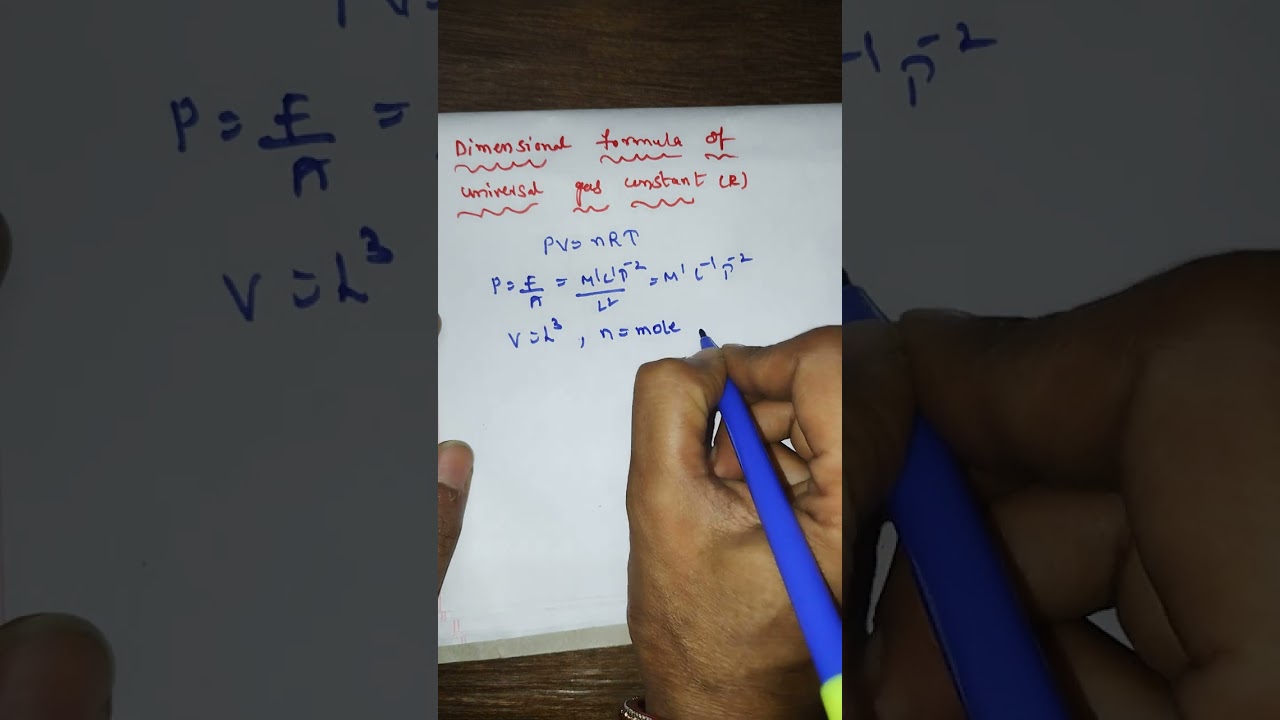 Dimensional formula of
universal gas constant (R)
PV = nRT
P = F/A = M¹L¹T⁻²/L² = M¹ L⁻¹ T⁻²
V = L³ , n = mole